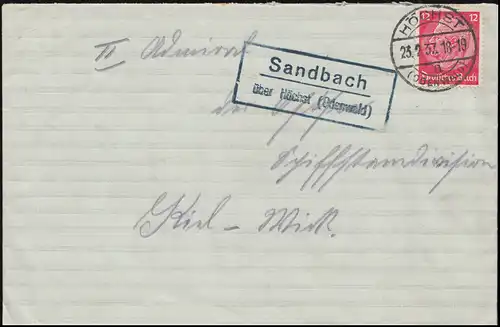 HÖCHST
23.2.37.18-19
(ODENWALD)
12 12
Deutsches Reich
Sandbach
über Höchst (Odenwald)
II Admiral
der
Schiffstamdivision
Kiel - Wik.